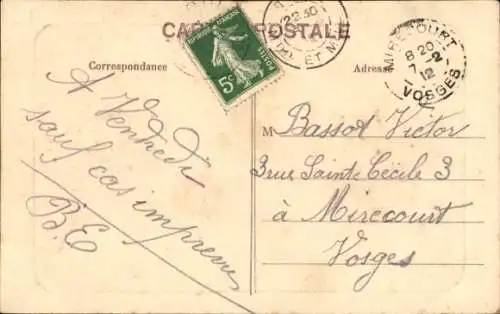 CARTE POSTALE
REPUBLIQUE FRANÇAISE
POSTES
5c
22 30
ET M
MIRECOURT
8 20
7 - 2
12
VOSGES
Correspondance
Adresse
A Vendredi
sauf cas imprevu
B.E
M Bassot Victor
3 rue Sainte Cécile 3
à Mirecourt
Vosges